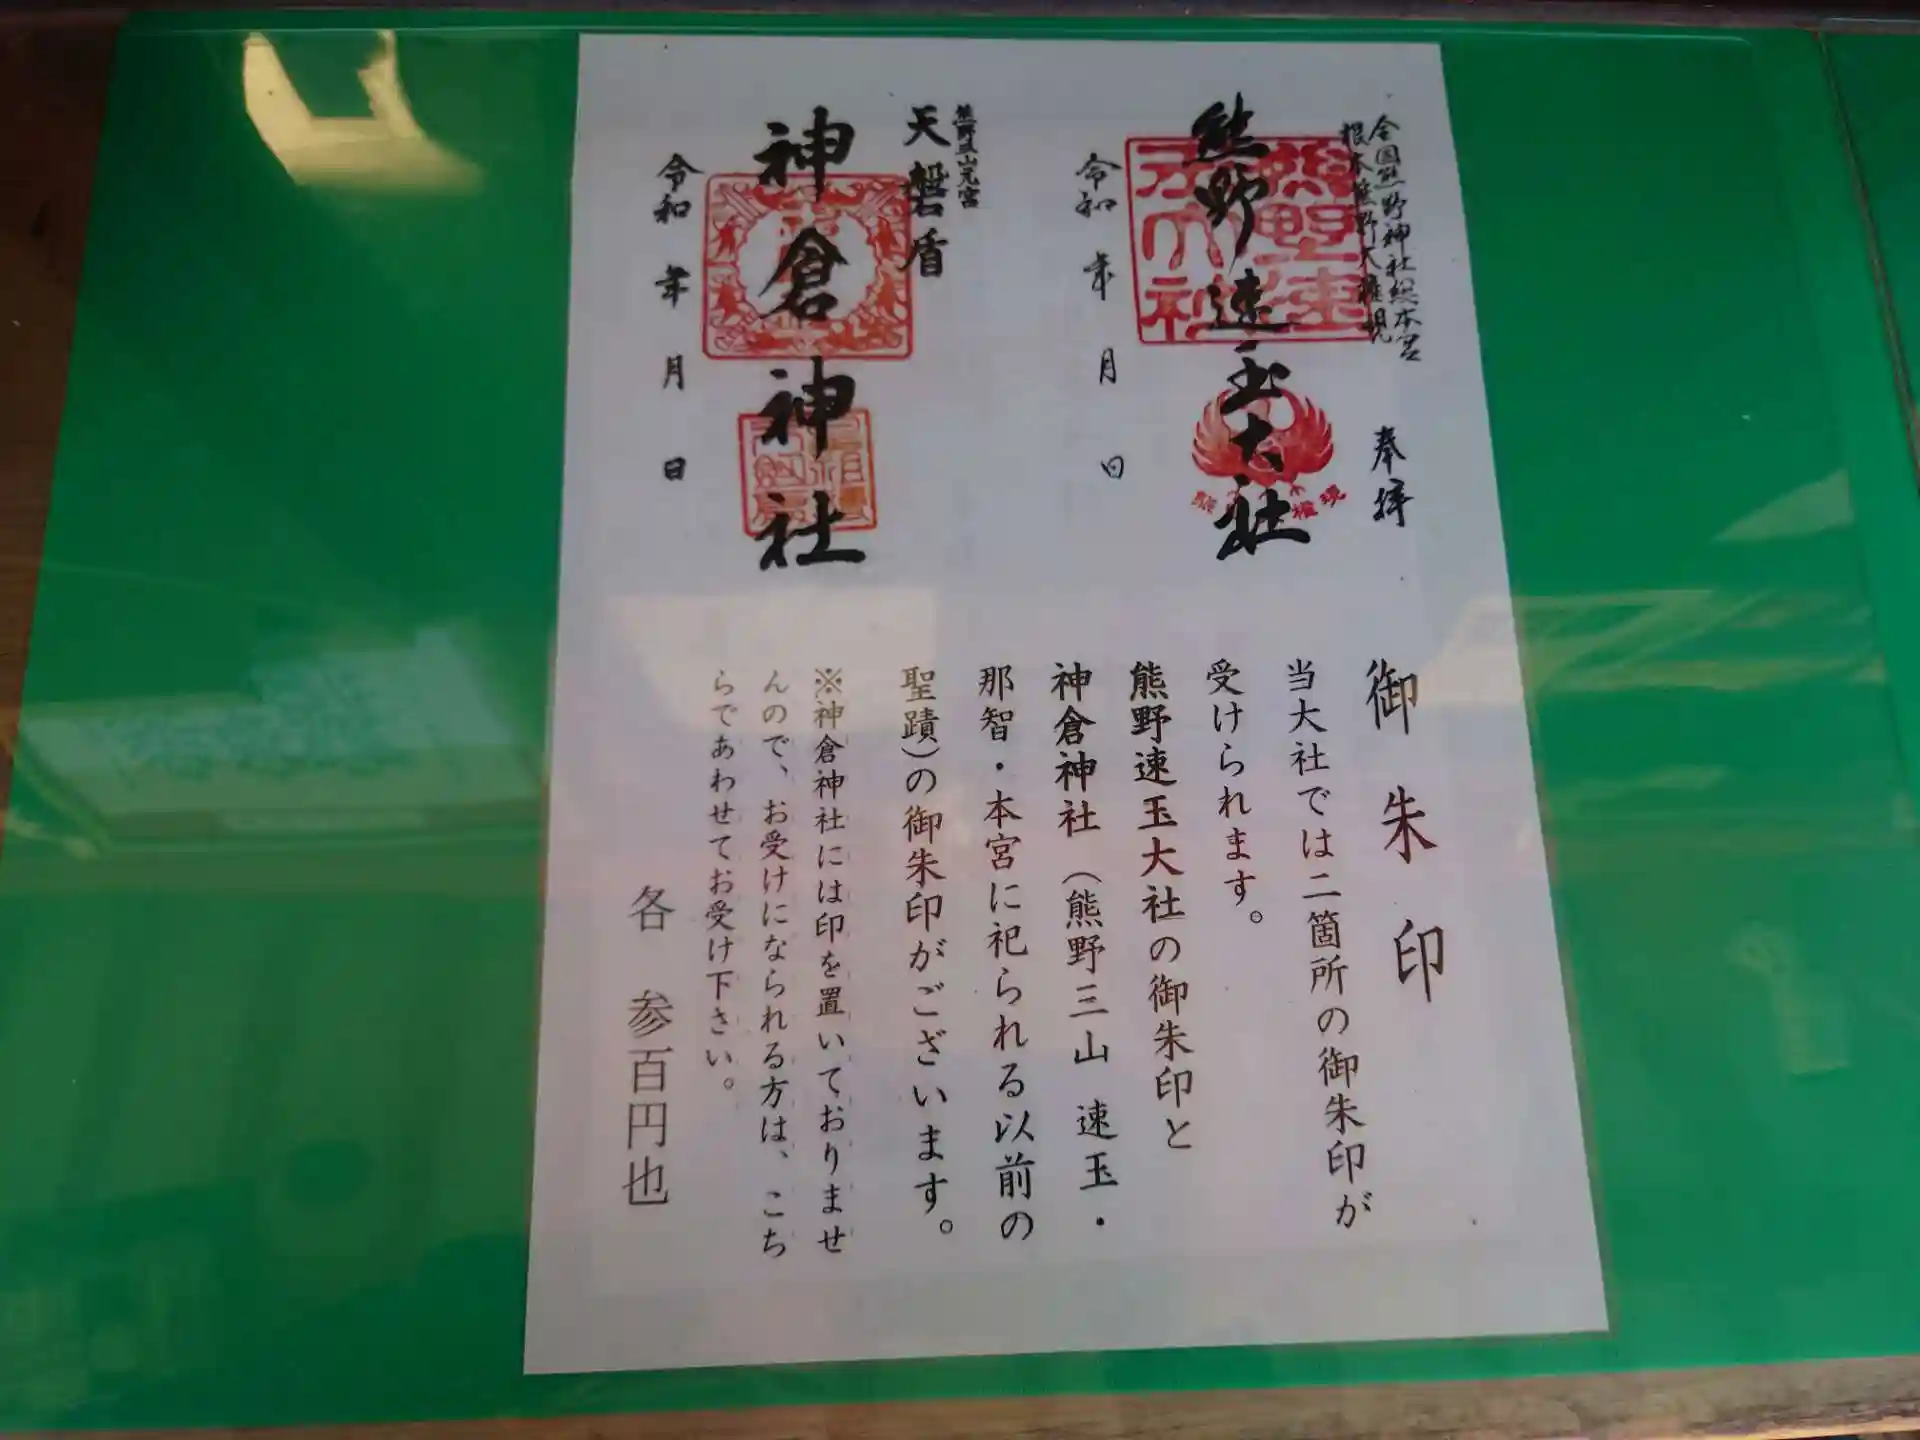 全国熊野神社総本宮
根本熊野大権現
奉拝
熊野速玉大社
令和 年 月 日
熊野三山元宮
天磐盾
神倉神社
令和 年 月 日
御朱印
当大社では二箇所の御朱印が
受けられます。
熊野速玉大社の御朱印と
神倉神社（熊野三山 速玉・
那智・本宮に祀られる以前の
聖蹟）の御朱印がございます。
※神倉神社には印を置いておりませ
んので、お受けになられる方は、こち
らであわせてお受け下さい。
各 参百円也